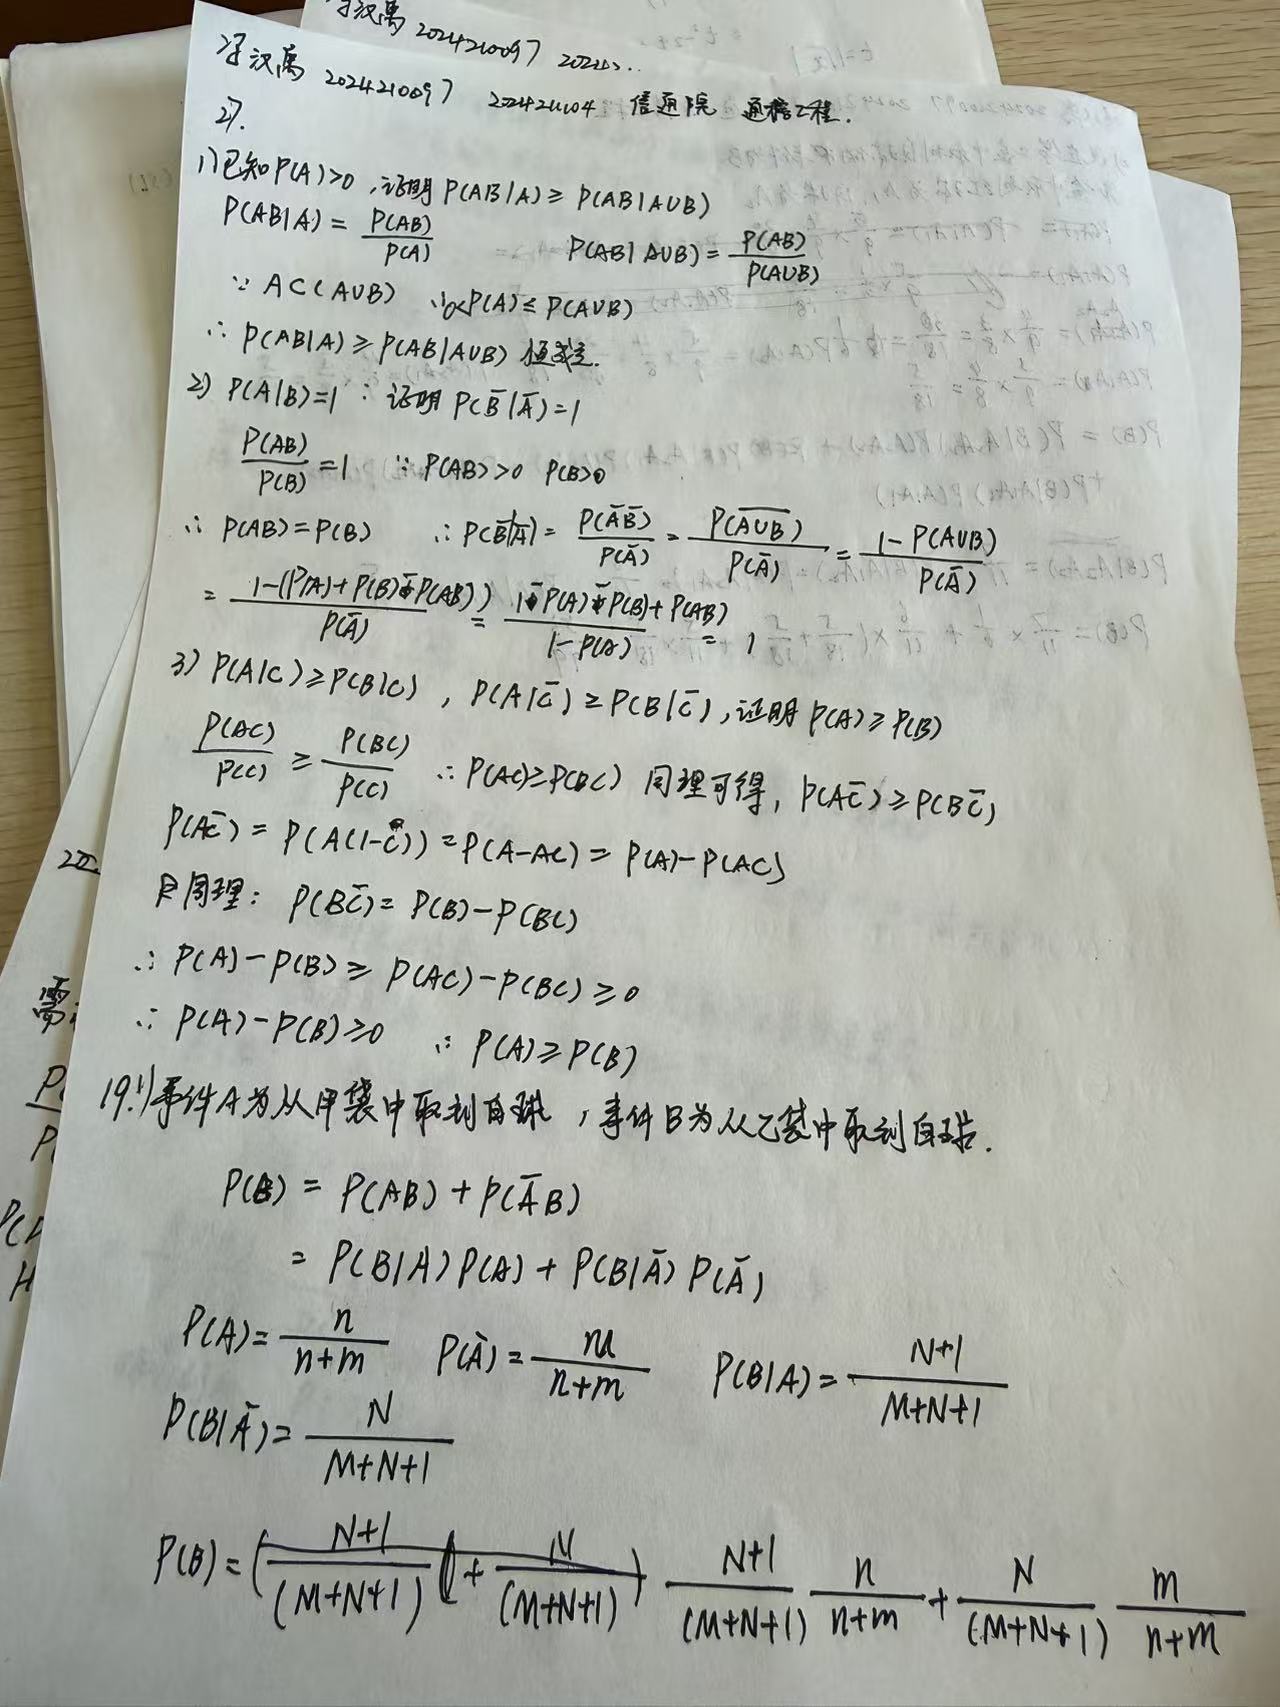 汉禹 2024210097
汉禹 2024210097 2024211104 信通院 通信工程.
27.
1)已知P(A)>0,证明 P(AB|A)≥P(AB|A∪B)
P(AB|A)=P(AB)/P(A) P(AB|A∪B)=P(AB)/P(A∪B)
∵ A⊂(A∪B) ∴0<P(A)≤P(A∪B)
∴ P(AB|A)≥P(AB|A∪B) 恒成立.
2) P(A|B)=1 ∵ 证明 P(B̄|Ā)=1
P(AB)/P(B)=1 ∵ P(AB)>0 P(B)>0
∴ P(AB)=P(B) ∴P(B̄|Ā)=P(ĀB̄)/P(Ā)=P(\overline{A∪B})/P(Ā)=1-P(A∪B)/P(Ā)
=1-(P(A)+P(B)-P(AB))/P(Ā)=1-P(A)-P(B)+P(AB)/1-P(A)=1
3) P(A|C)≥P(B|C), P(A|C̄)≥P(B|C̄),证明 P(A)≥P(B)
P(AC)/P(C)≥P(BC)/P(C) ∴P(AC)≥P(BC) 同理可得, P(AC̄)≥P(BC̄)
P(AC̄)=P(A(1-C))=P(A-AC)=P(A)-P(AC)
同理: P(BC̄)=P(B)-P(BC)
∴ P(A)-P(B)≥P(AC)-P(BC)≥0
∴ P(A)-P(B)≥0 ∴ P(A)≥P(B)
19.1)事件A为从甲袋中取到白球,事件B为从乙袋中取到白球.
P(B)=P(AB)+P(ĀB)
=P(B|A)P(A)+P(B|Ā)P(Ā)
P(A)=n/n+m P(Ā)=m/n+m P(B|A)=N+1/M+N+1
P(B|Ā)=N/M+N+1
P(B)=N+1/(M+N+1) n/n+m+N/(M+N+1) m/n+m